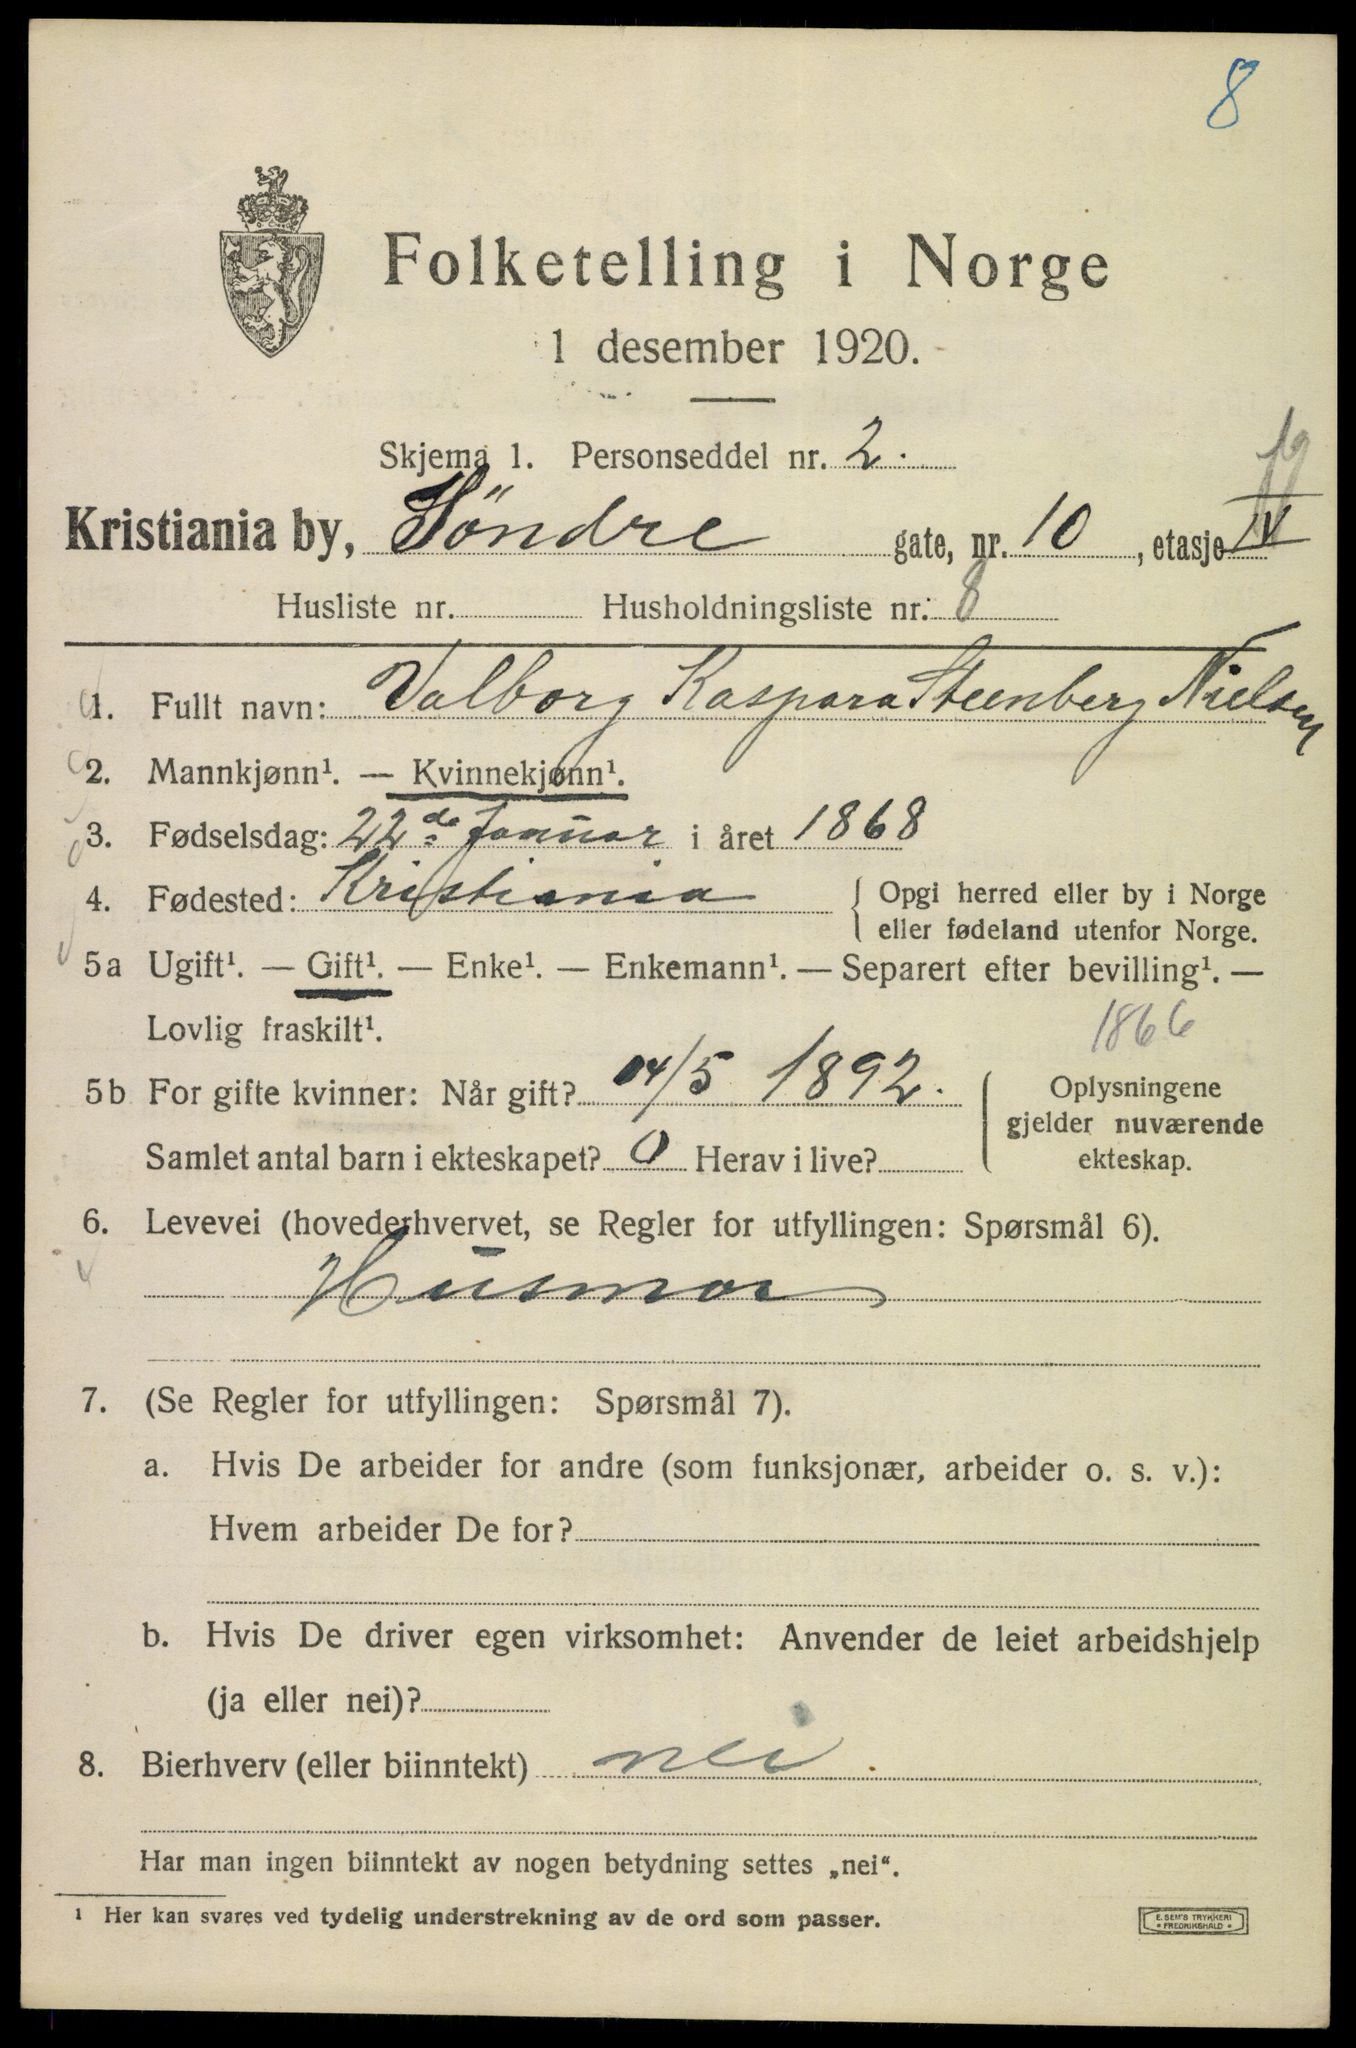 8
Folketelling i Norge
1 desember 1920.
Skjema 1. Personseddel nr. 2.
Kristiania by, Söndre gate, nr. 10, etasje IV
Husliste nr. Husholdningsliste nr. 8
1. Fullt navn: Valborg Kaspara Steenberg Nielsen
2. Mannkjønn¹. — Kvinnekjønn¹.
3. Fødselsdag: 22de Januar i året 1868
4. Fødested: Kristiania { Opgi herred eller by i Norge
eller fødeland utenfor Norge.
5a Ugift¹. — Gift¹. — Enke¹. — Enkemann¹. — Separert efter bevilling¹. —
Lovlig fraskilt¹.
1866
5b For gifte kvinner: Når gift? 04/5 1892. { Oplysningene
gjelder nuværende
Samlet antal barn i ekteskapet? 0 Herav i live? ekteskap.
6. Levevei (hovederhvervet, se Regler for utfyllingen: Spørsmål 6).
Husmor
7. (Se Regler for utfyllingen: Spørsmål 7).
a. Hvis De arbeider for andre (som funksjonær, arbeider o. s. v.):
Hvem arbeider De for?
b. Hvis De driver egen virksomhet: Anvender de leiet arbeidshjelp
(ja eller nei)?
8. Bierhverv (eller biinntekt) nei.
Har man ingen biinntekt av nogen betydning settes „nei“.
¹ Her kan svares ved tydelig understrekning av de ord som passer.
E. SEM'S TRYKKERI
FREDRIKSHALD